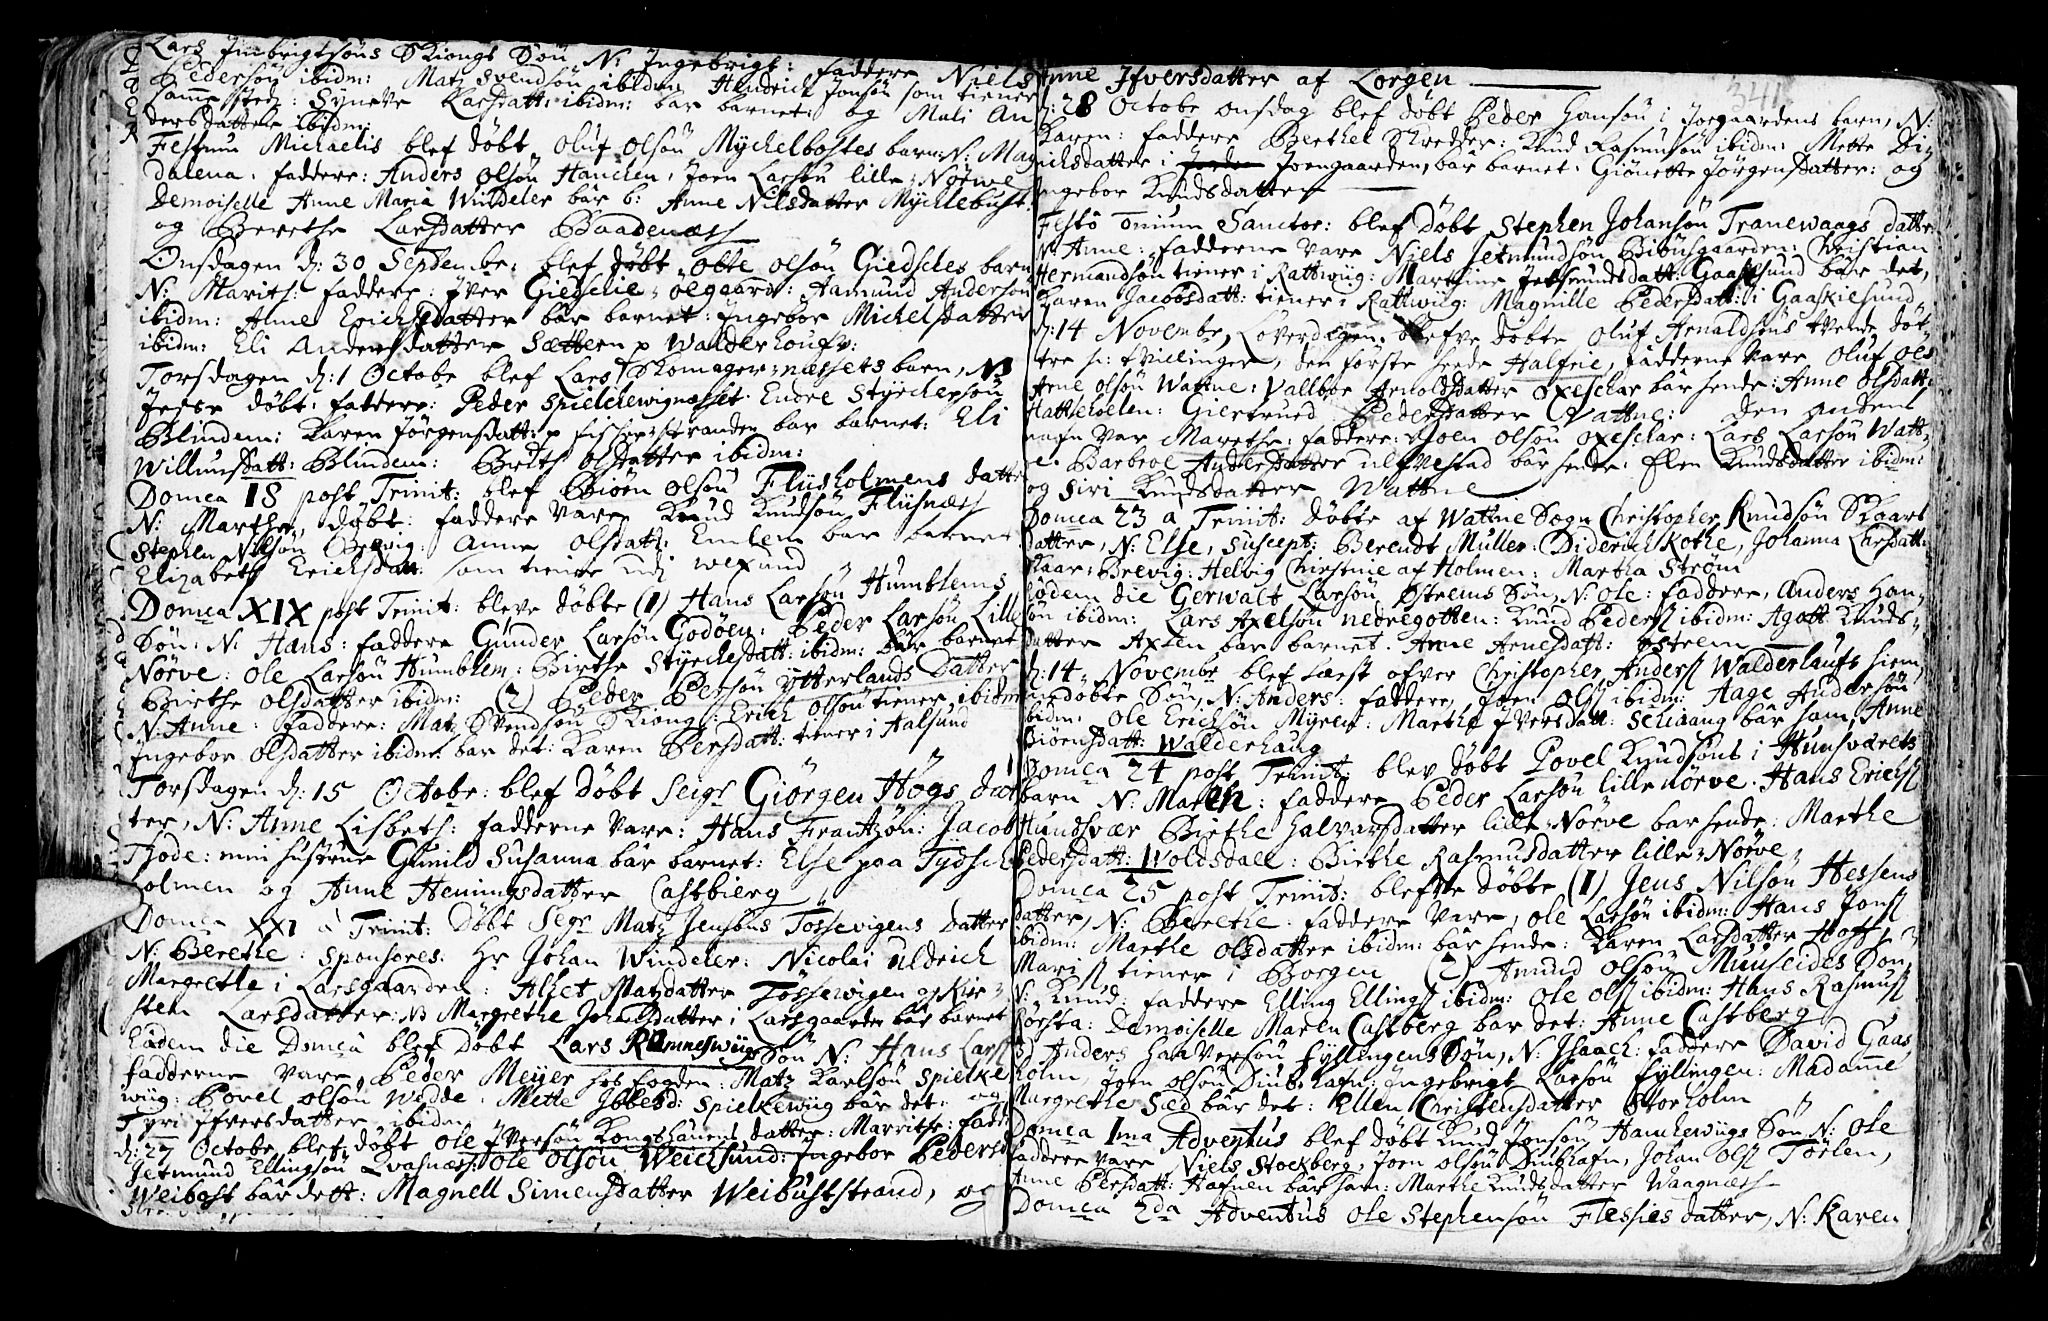 Lars Jnbrigtsöns Skiongs Sön N: Jngebrigt: faddere Niels
Pedersön ibidm: Matz Svendsön ibidm Hendrich Jonsön som tiener
samme stedz: Syneve Larsdatt: ibidm: bar barnet: og Mali An
dersdatter ibidm:
Festum Michaelis blef døbt Oluf Olsön Myckelbostes barn: N: Mag
dalena. faddere: Anders Olsön Hanchen, Joen Larsön lille Nörve
Demoiselle Anne Maria Windeler bär b: Anne Nilsdatter Mycklebust
og Berethe Larsdatter Baadenæss
Onsdagen d: 30 Septembe: blef döbt Olle Olsön Giedsches barn
N: Marith: faddere: Jver Giedsche Oegaard: Aamund Anderson
ibidm: Anne Erichsdatter bar barnet: Jngebor Michelsdatter
ibidm: Eli Andersdatter Sættern p Walderhoufv:
Torsdagen d: 1 Octobe blef Lars Skomager-næssets barn, N
Jesse döbt: faddere: Peder Spielchewignæsset. Endre Styrchepsön
Blindem: Karen Jörgensdatt: p fischerstranden bar barnet: Eli
Willumsdatt: Blindem: Brith Olsdatter ibidm:
Domca 18 post Trinit: blef Biörn Olsön Fliisholmens datter
N: Marthe, döbt: faddere vare Knud Knudsön Fliisnæss
Stephen Nilsön Brevig: Anne Olsdatt: Emlem bar barnet
Elizabeth Erichsdatt: som tiener udj Wexund
Domca XIX post Trinit: bleve döbte (1) Hans Larsön Humblems
Sön: N: Hans: faddere Gunder Larsön Godöen: Peder Larsön Lille
Nörve: Ole Larsön Humblem: Birthe Styrchesdatt: ibidm: bär barnet
Birthe Olsdatter ibidm: (2) Peder Persön Ytterlands Datter
N: Anne: faddere: Matz Svendsön Skiong: Erich Olsön tiener ibidm
Jngebor Olsdatter ibidm: bar det: Karen Persdatt: tiener i Aalsund
Torsdagen d: 15 Octobr: blef döbt Seigr Giörgen Högs dat
ter, N: Anne Lisbeth: fadderne vare: Hans Frantzön: Jacob
Thode: min husrue Gunild Susanna bär barnet: Else paa Tydsch
holmen og Anne Heningsdatter Castbierg
Domca XXI à Trinit: Döbt Segr Matz Jensöns Tössevigens Datter
N: Berethe: Sponsores: Hr Johan Windeler: Nicolai Uldrich
Margrethe i Larsgaarden: Alhet Matzdatter Tössewigen og Kir-
sten Larsdatter: Margrethe Johansdatter i Larsgaarden bär barnet
Eadem die Domca blef Döbt Lars Remneswiigs Sön N: Hans Larss
fadderne vare Peder Meyer hos fogden: Matz Karlsön Spielke
wiig: Povel Olsön Wedde. Mette Jbbesd: Spielkewiig bär det: og
Tyri Jfversdatter ibidm
d: 27 Octobe blef döbt Ole Jversön Kongshauens datter: Marrithe: fadd:
Jetmund Ellingsön Qvasnæss: Ole Olsön Weichsund: Jngebor Pedersd
Weibost bär dett: Magnell Simensdatter Weibuststrand, og
Anne Jfversdatter af Lorgen
d: 28 Octobe onsdag blef döbt Peder Hansön i Jorgaardens barn, N:
Karen: faddere Berthel Skredder: Knud Rasmusön ibidm: Mette Di-
richsdatter i Joengaarden, bär barnet. Giönette Jörgensdatter: og
Jngebor Knudsdatter
Festo Omium Sanctor: blef döbt Stephen Johansön Tranewaags datter
N: Anne: fadderne vare Niels Jetmundsön Bibusgaarden: Christian
Hermandsön tiener i Rattwiig: Marthine Jetmundsdatt: Gaassund bär det,
Karen Jacobsdatt: tiener i Rattwiig: Magnille Pedersdatt: i Gaaskiesund
d: 14 Novembe, Löverdagen, blefve döbte Oluf Arnoldsöns tvende döt
tre s: tvillinger, den förste hende Halfrie, fadderne vare Oluf Ols
Arne Olsön Wattne: Vallbor Arnoldsdatter Oxeschar bär hende: Anne Olsdatt:
Hattlehoelen: Giertrud Pedersdatter Vattne: den anden
nafn var Marethe: faddere: Joen Olsön Oxeschar: Lars Larsön Watt
ne. Barbroe Andersdatter Ulfvestad bär hende: Elen Knudsdatter ibidm:
og Siri Knudsdatter Wattne
Domca 23 à Trinit: döbte af Wattne Sogn Christopher Knudsön Skaars
datter, N: Else, Suscept: Berendt Muller: Diderich Kothe, Johanna Larsdatt:
Skaar: Brevig: Helvig Chirstine af Holmen: Martha Ström
Eodem die Gerwalt Larsön Östrems Sön, N: Ole: faddere, Anders Han
sön ibidm: Lars Axelsön nedregotten: Knud Pederss ibidm: Agatt Knuds-
datter Axlen bar barnet. Anne Arnesdatt: Östrem
d: 14 Novembr blef læst ofver Christopher Anderss Walderhaufs hiem
medöbte Sön, N: Anders: faddere, Joen Olss ibidm: Aage Andersön
ibidm: Ole Erichsön Myren: Marthe Jversdatt: Schaang bär ham, Anne
Biörnsdatt: Walderhaug
Domca 24 post Trinit: blev döbt Povel Knudsöns i Hunsværets
barn N: Maren: faddere Peder Larsön lille nörve. Hans Erichss
Hundsvær Birthe Halvarsdatter lille Nörve bar hende: Marthe
Pedersdatt: Woldsdall: Birthe Rasmusdatter lille Nörve
Domca 25 post Trinit: blefve döbte (1) Jens Nilsön Hessens
datter, N: Berethe: faddere vare, Ole Larsön ibidm: Hans Jonss
ibidm: Marthe Olsdatter ibidm: bär hende: Karen Larsdatter Hoff,
Mariss tiener i Borgen (2) Amund Olsön Muuseides Sön
N: Knud: faddere Elling Ellingss ibidm: Ole Olss ibidm: Hans Rasmuss
Rörsta: Demoiselle Maren Castberg bar det: Anne Castberg
3 Anders Haaversön Fyllingens Sön, N: Jsaach: faddere David Gaas
holm, Joen Olsön Diubhafn: Jngebrigt Larsön Fyllingen: Madame
Margrethe Sæd bär det: Ellen Christensdatter Storholm
Domca 1ma Adventus blef döbt Knud Jonsön Hanchewiigs Sön N: Ole
faddere vare Niels Stockberg, Joen Olsön Diubhafn, Johan Olss Törlen,
Anne Persdatt: Hafnen bär ham: Marthe Knudsdatter Waagnæss
Domca 2da Adventus Ole Stephensön Flessies datter, N: Karen